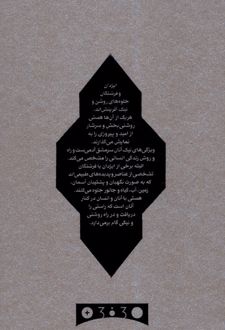 ایزدان
و فرشتگان
جلوه‌های روشن و
نیک آفرینش‌اند.
هریک از آن‌ها هستیِ
روشنی‌بخش و سرشار
از امید و پیروزی را به
نمایش می‌گذارند.
ویژگی‌های نیک آنان سرمشق آدمی‌ست و راه
و روش زندگی انسانی را مشخص می‌کند.
البته برخی از ایزدان یا فرشتگان
تشخصی از عناصر و پدیده‌های طبیعی‌اند
که به صورت نگهبان و پشتیبان آسمان،
زمین، آب، گیاه و جانور جلوه می‌کنند.
همدلی با آنان و انسان در کنار
آنان است که راستی را
دریافت و در راه روشنی
و نیکی گام برمی‌دارد.